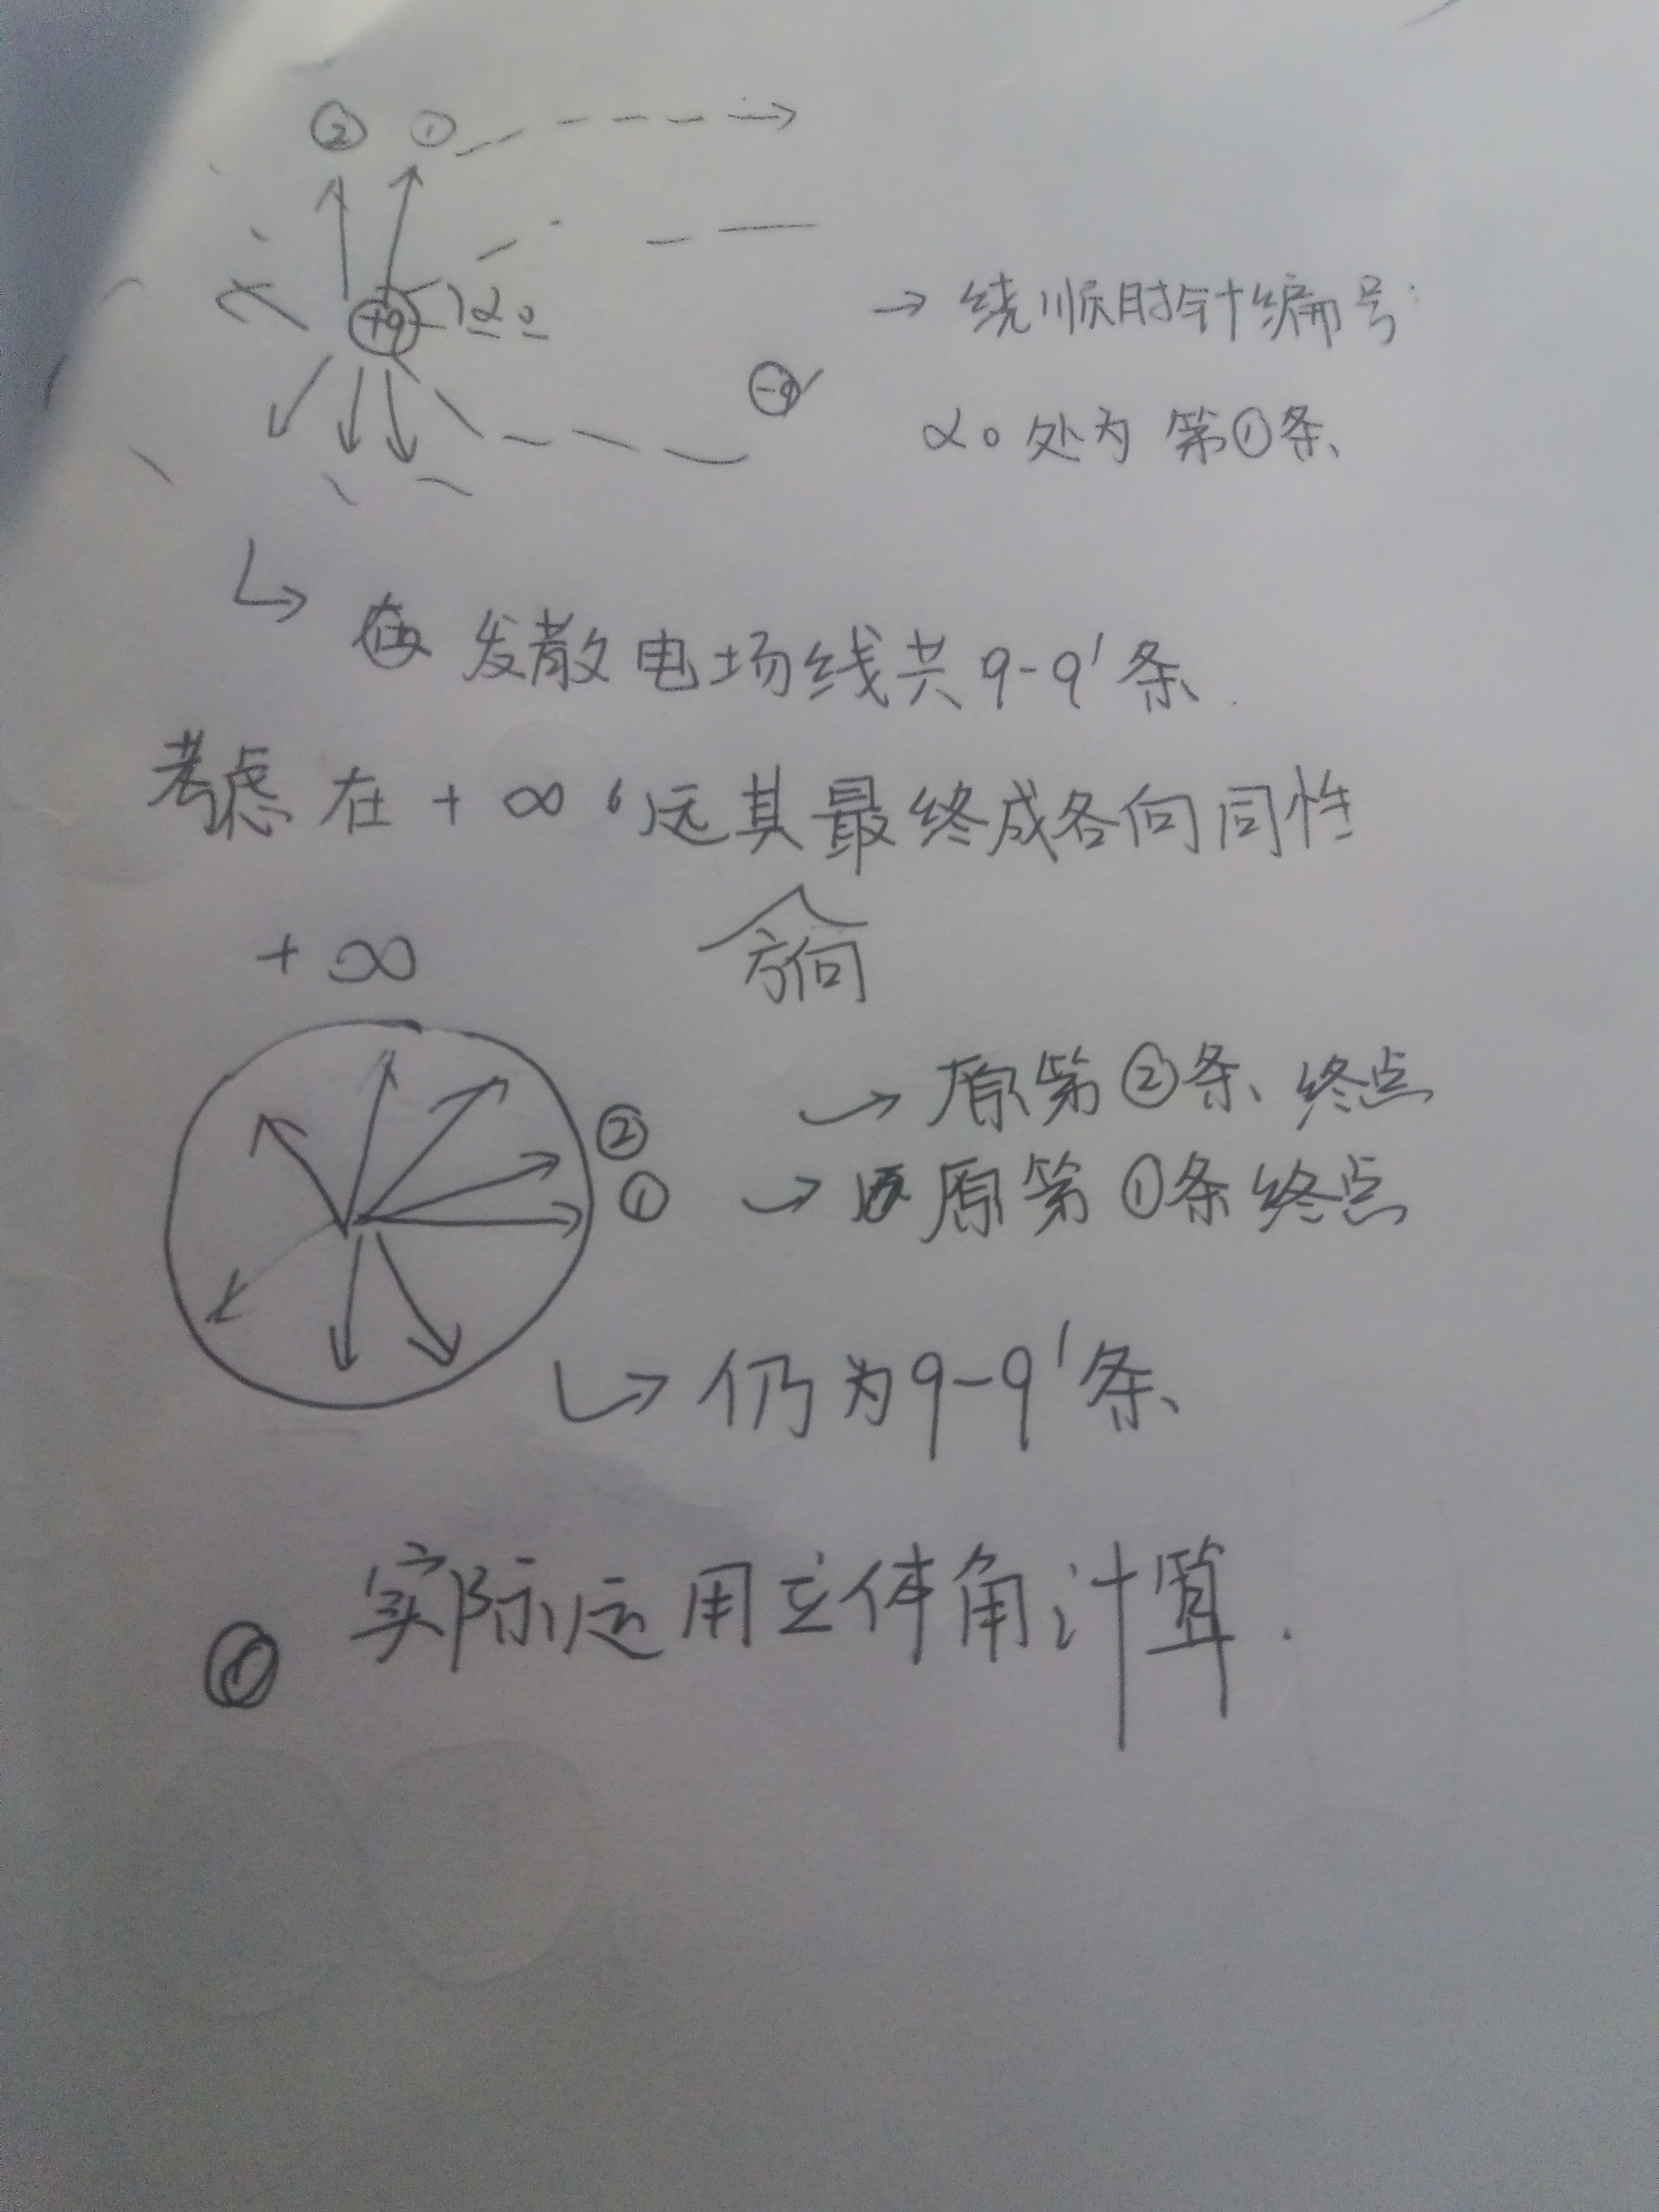 ② ①
+q α₀
→ 绕顺时针编号:
-q'
α₀处为 第①条
发散电场线共q-q'条.
考虑在+∞远其最终成各向同性
+∞ 方向
② → 原第②条终点
① → 原第①条终点
仍为q-q'条
实际运用立体角计算.